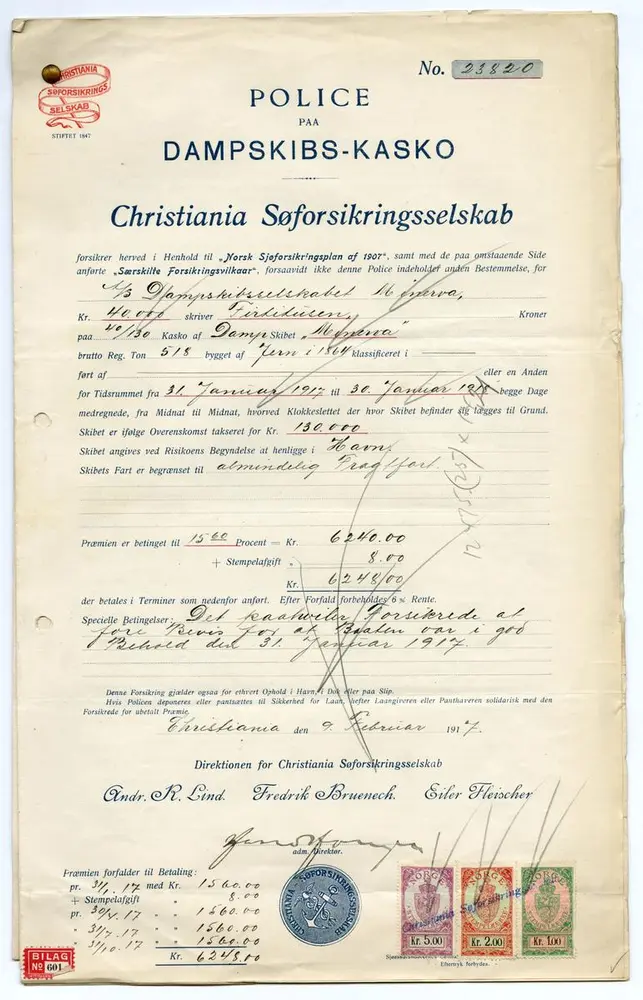 CHRISTIANIA
SØFORSIKRINGS
SELSKAB
STIFTET 1847
No. 23820
POLICE
PAA
DAMPSKIBS-KASKO
Christiania Søforsikringsselskab
forsikrer herved i Henhold til „Norsk Sjøforsikringsplan af 1907", samt med de paa omstaaende Side
anførte „Særskilte Forsikringsvilkaar", forsaavidt ikke denne Police indeholder anden Bestemmelse, for
A/S Dampskibsselskabet Minerva,
Kr. 40,000 skriver Firtitusen, Kroner
paa 40/130 Kasko af Damp Skibet „Minerva"
brutto Reg. Ton 518 bygget af Jern i 1864 klassificeret i
ført af eller en Anden
for Tidsrummet fra 31. Januar 1917 til 30. Januar 1918 begge Dage
medregnede, fra Midnat til Midnat, hvorved Klokkeslettet der hvor Skibet befinder sig lægges til Grund.
Skibet er ifølge Overenskomst takseret for Kr. 130.000
Skibet angives ved Risikoens Begyndelse at henligge i Havn.
Skibets Fart er begrænset til almindelig Fragtfart.
Præmien er betinget til 15 60 Procent = Kr. 6240.00
+ Stempelafgift „ 8.00
Kr. 6248/00
der betales i Terminer som nedenfor anført. Efter Forfald forbeholdes 6 % Rente.
Specielle Betingelser: Det paahviler Forsikrede at
føre Bevis for at Baaten var i god
Behold den 31. Januar 1917.
Denne Forsikring gjælder ogsaa for ethvert Ophold i Havn, i Dok eller paa Slip.
Hvis Policen deponeres eller pantsættes til Sikkerhed for Laan, hefter Laangiveren eller Panthaveren solidarisk med den
Forsikrede for ubetalt Præmie.
Christiania den 9. Februar 1917.
Direktionen for Christiania Søforsikringsselskab
Andr. R. Lind. Fredrik Bruenech. Eiler Fleischer
adm. Direktør.
Præmien forfalder til Betaling:
pr. 31/1. 17 med Kr. 1560.00
+ Stempelafgift „ 8.00
pr. 30/4. 17 „ „ 1560.00
„ 31/7. 17 „ „ 1560.00
„ 31/10. 17 „ „ 1560.00
Kr. 6248.00
CHRISTIANIA SØFORSIKRINGSSELSKAB
NORGE
NORGE
NORGE
Kr. 5.00
Kr. 2.00
Kr. 1.00
Christiania Søforsikrings
Eftertryk forbydes.
BILAG
No 601